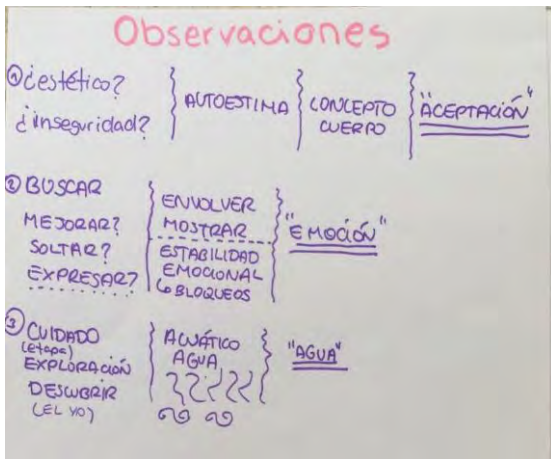 Observaciones
① ¿estético?
¿inseguridad?
AUTOESTIMA
CONCEPTO
CUERPO
"ACEPTACIÓN"
② BUSCAR
MEJORAR?
SOLTAR?
EXPRESAR?
ENVOLVER
MOSTRAR
ESTABILIDAD
EMOCIONAL
↳ BLOQUEOS
"EMOCIÓN"
③ CUIDADO
(etapa)
EXPLORACIÓN
DESCUBRIR
(EL YO)
ACUÁTICO
AGUA
"AGUA"